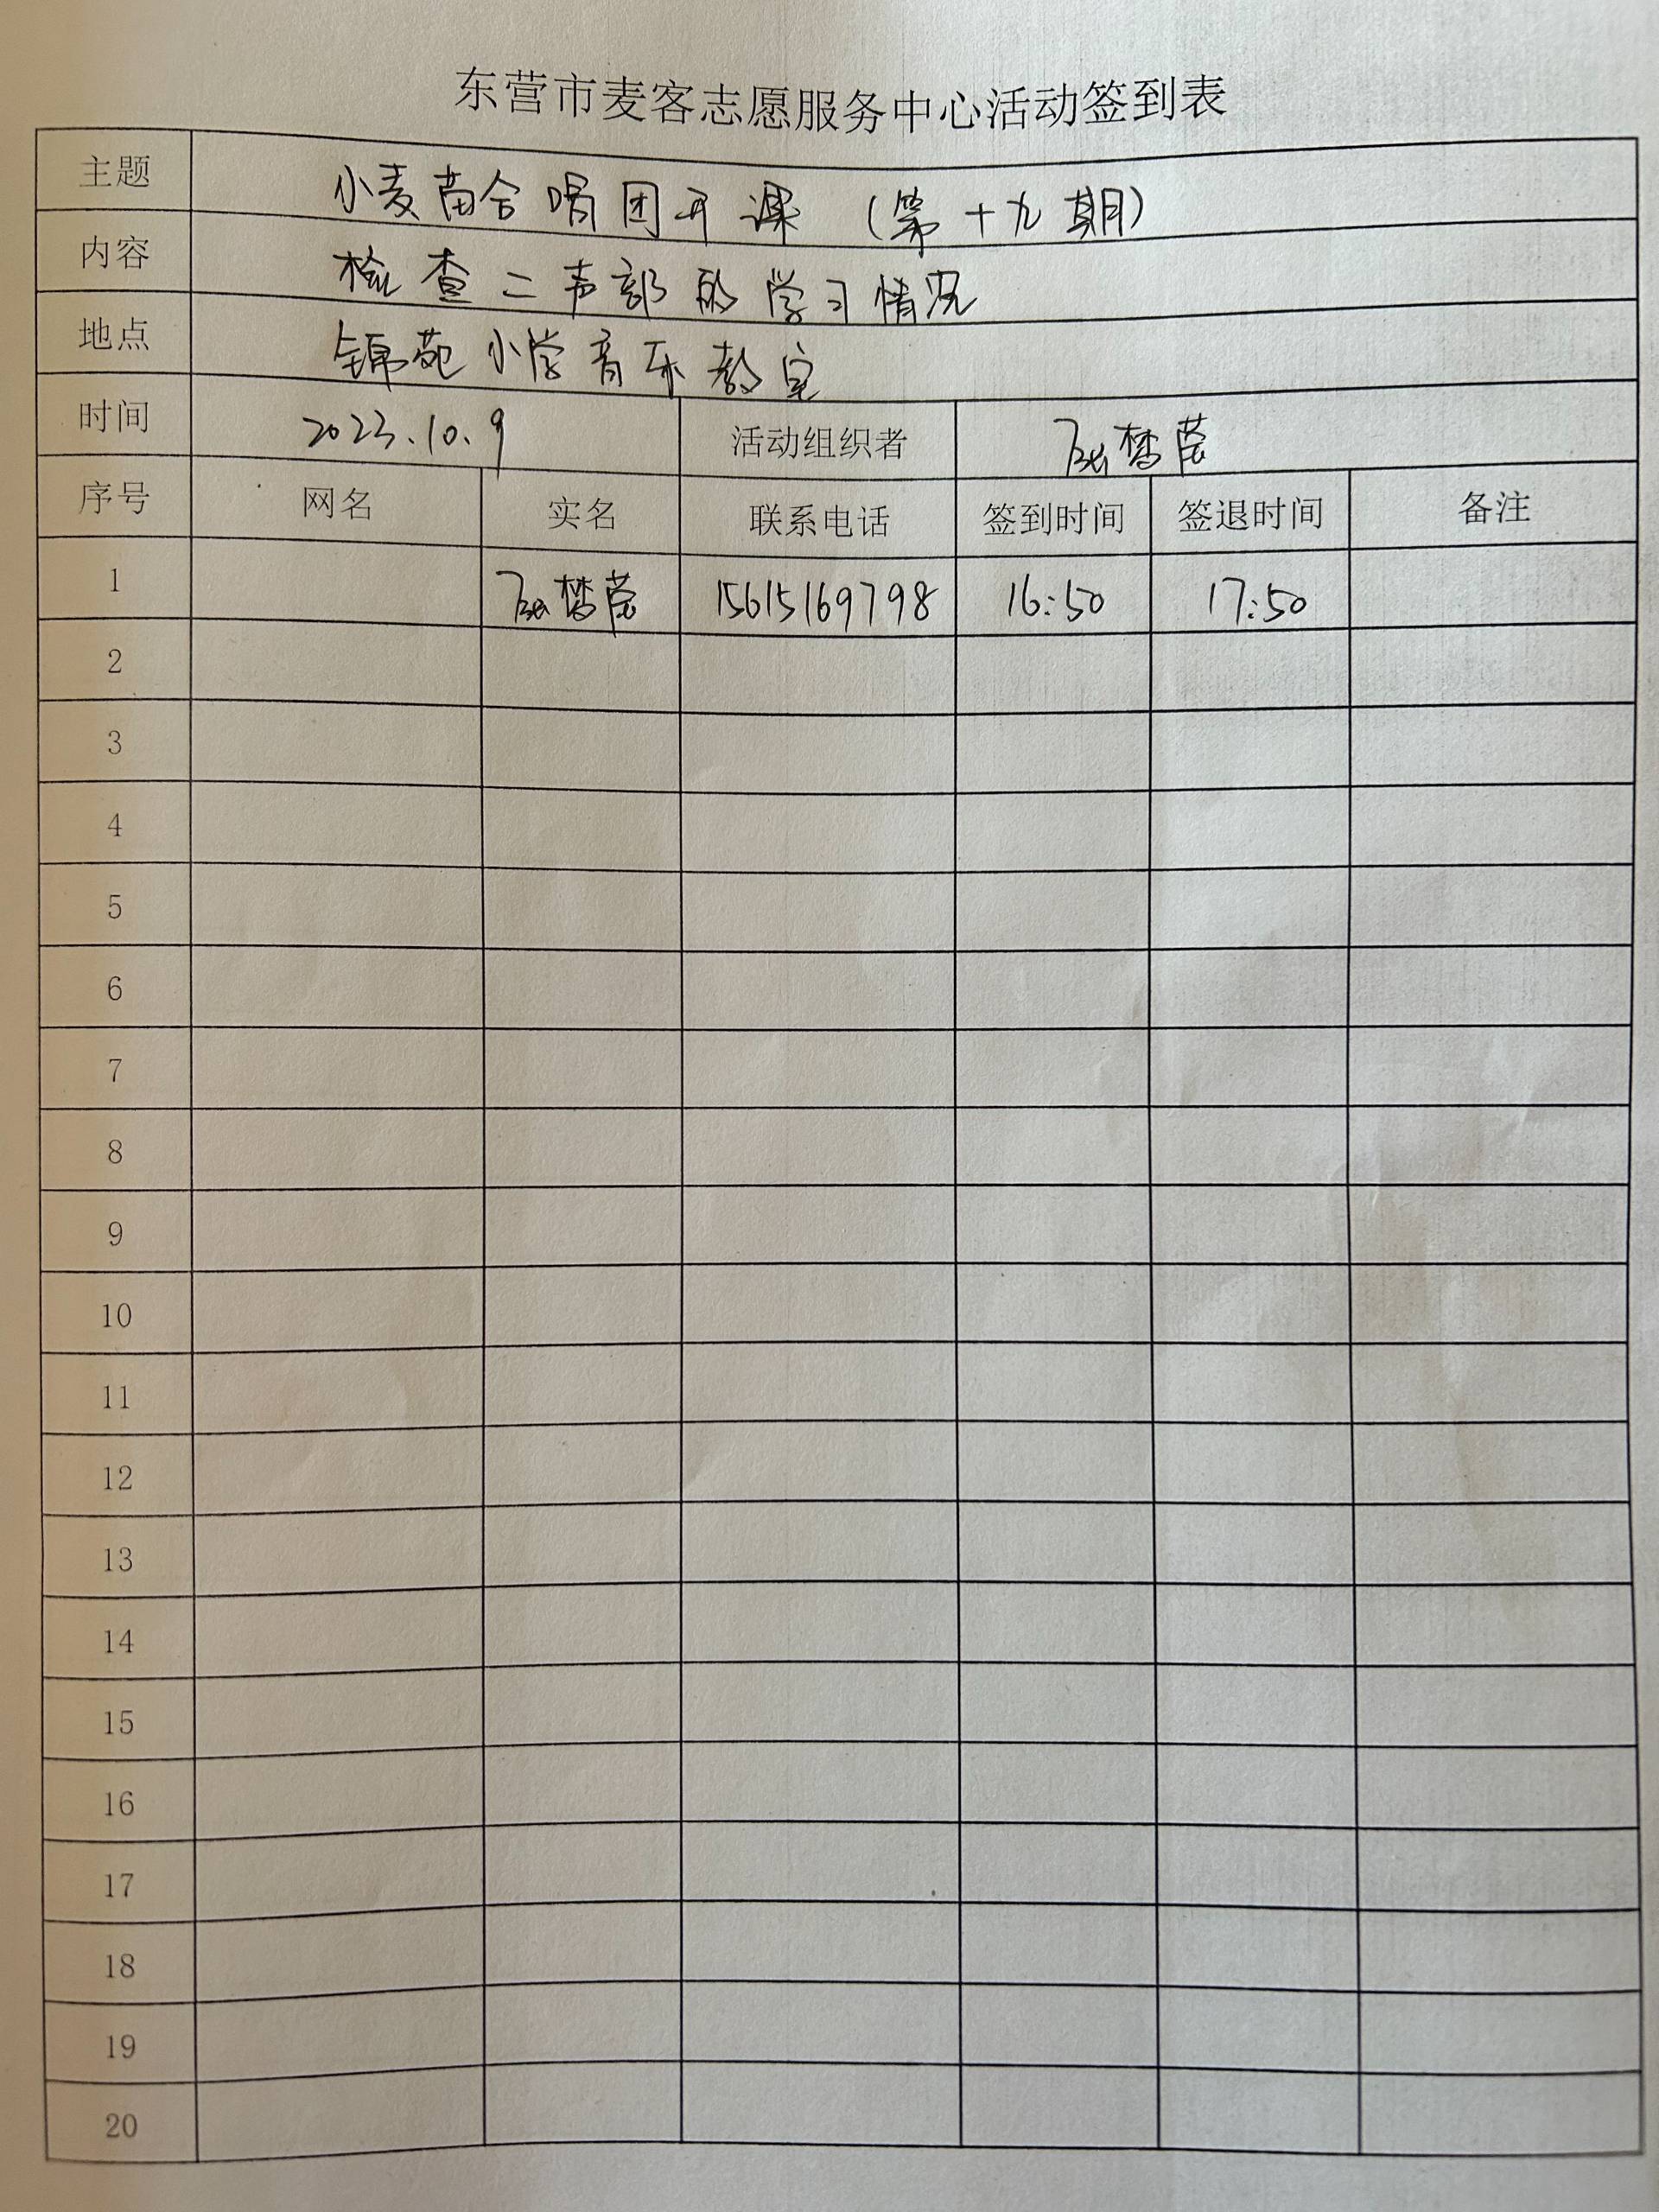 东营市麦客志愿服务中心活动签到表
主题 小麦苗合唱团开课（第十九期）
内容 检查二声部的学习情况
地点 锦苑小学音乐教室
时间 2023.10.9 活动组织者 梦莹
序号 网名 实名 联系电话 签到时间 签退时间 备注
1 梦莹 15615169798 16:50 17:50
2
3
4
5
6
7
8
9
10
11
12
13
14
15
16
17
18
19
20